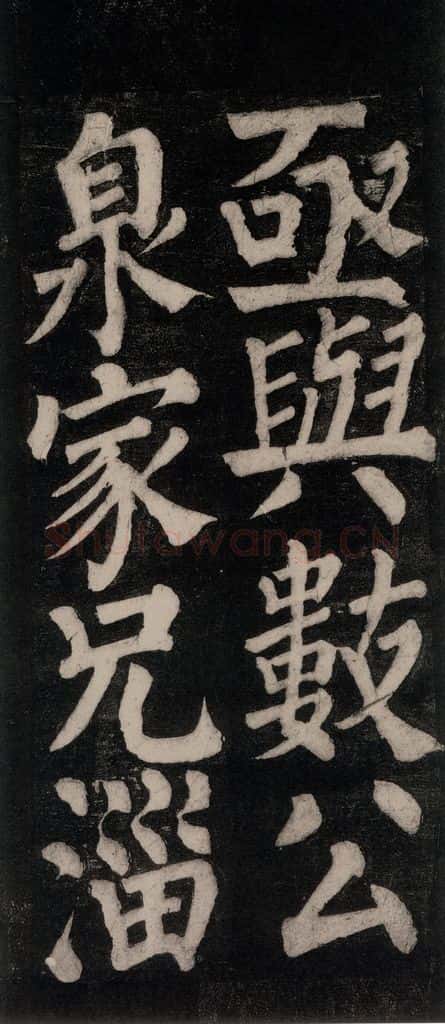 亟與數公
泉家兄淄
Shufawang.CN